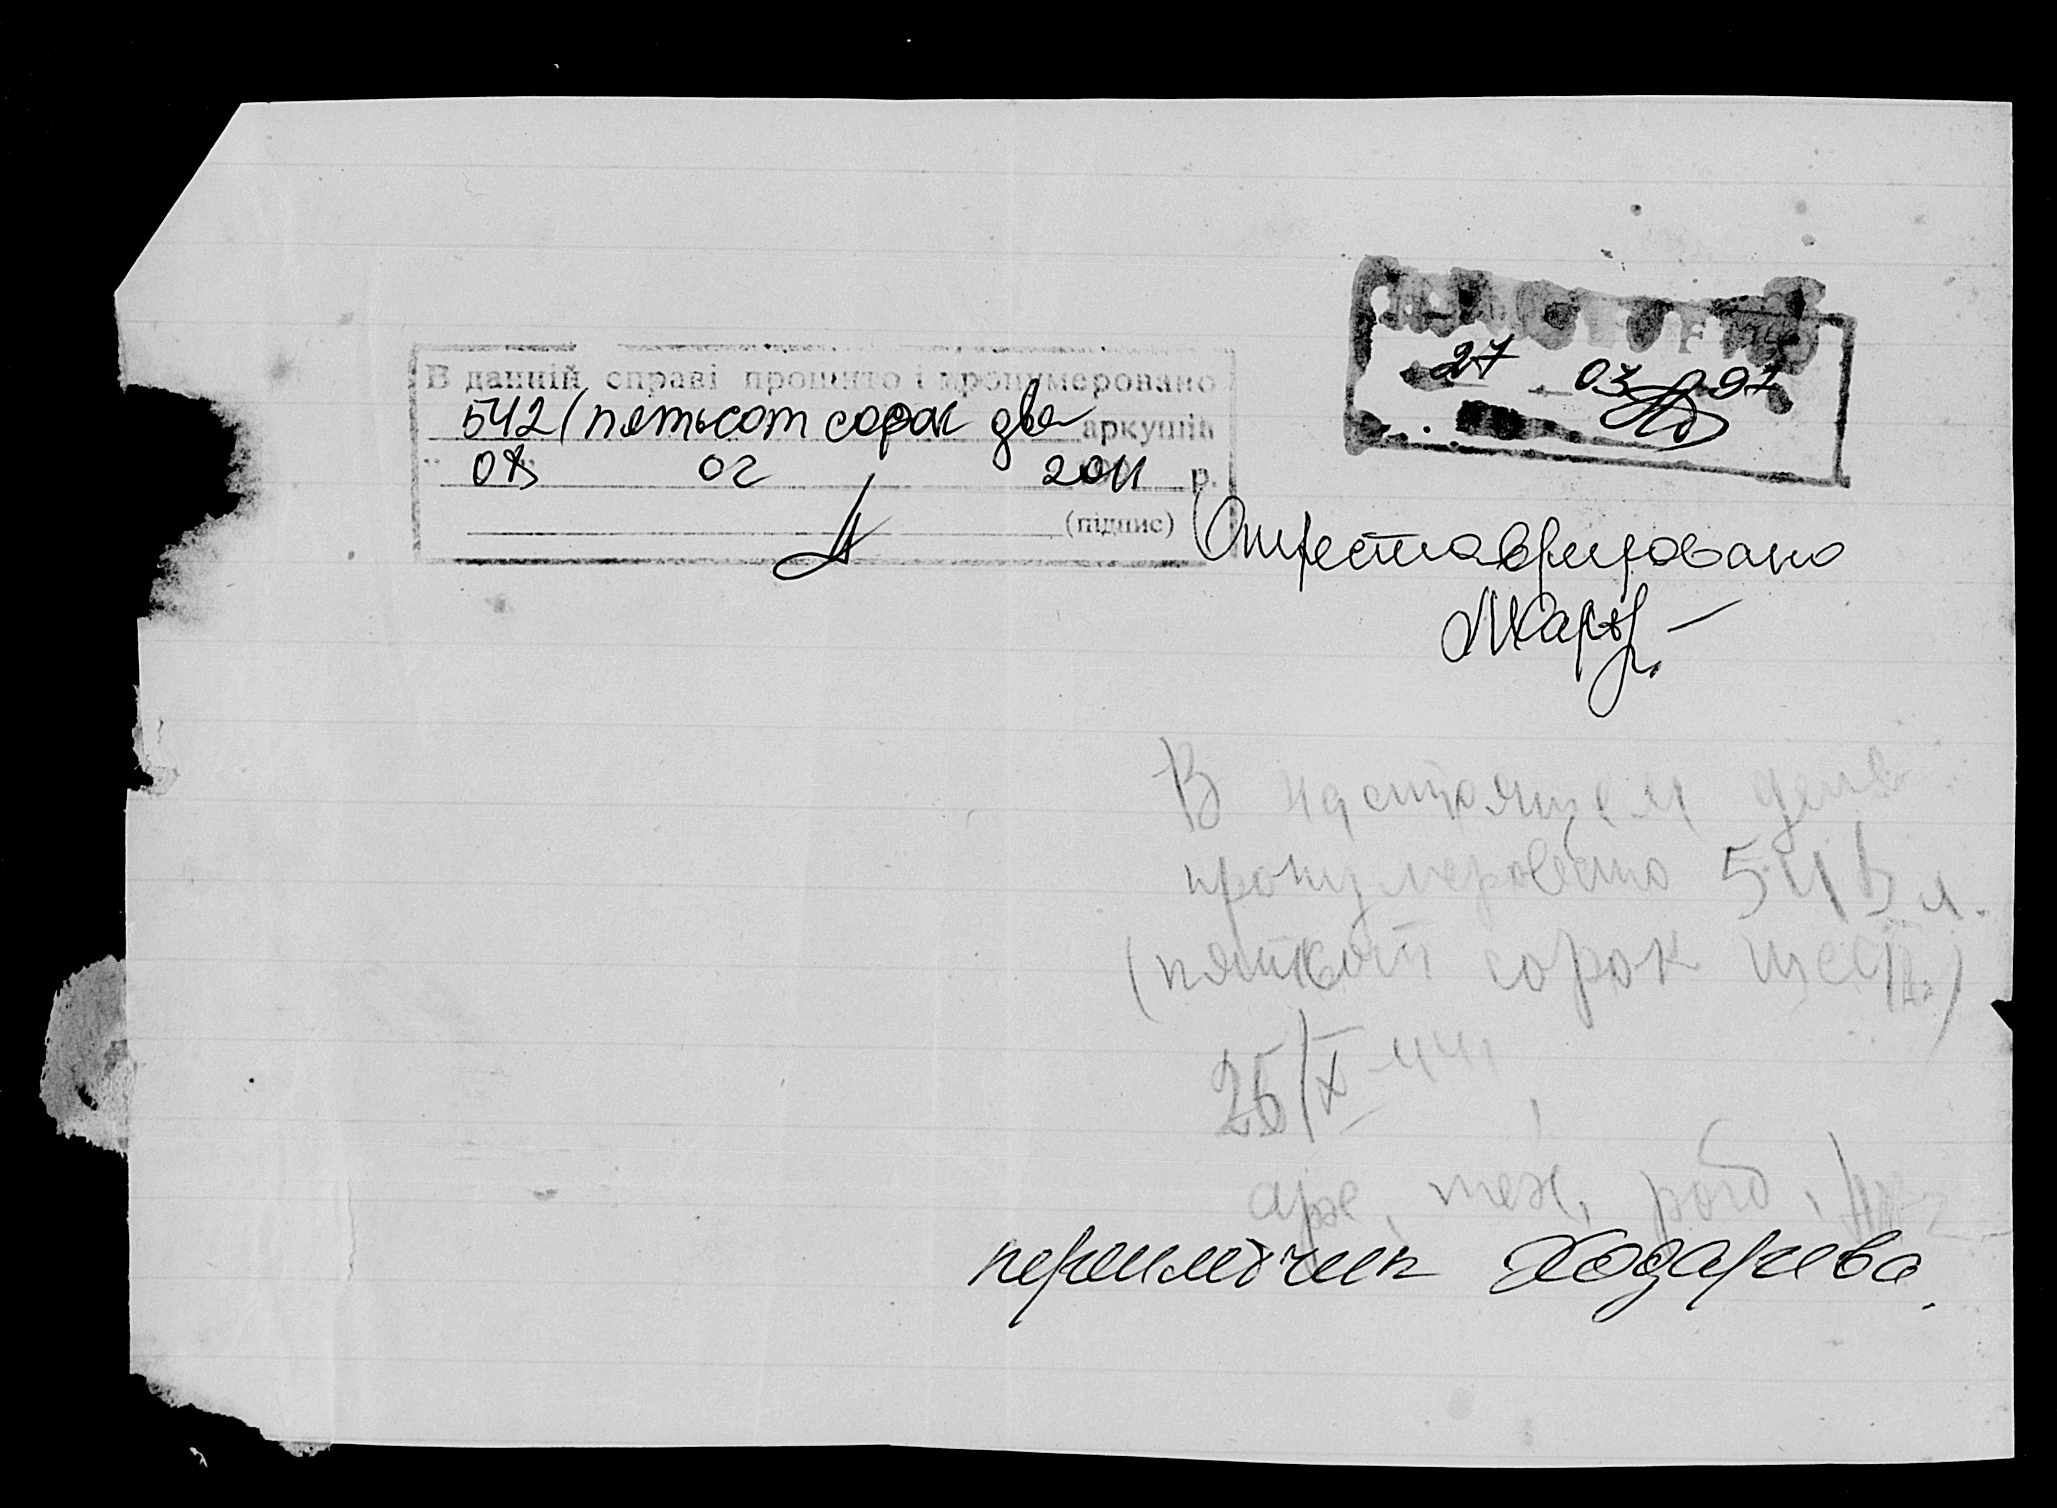 В данній справі прошито і пронумеровано
542 (пятьсот сорок два аркушів
02 2011 р.
(підпис)
27 03 97
Отреставрировано
В настоящем деле
пронумеровано 546 л.
(пятьсот сорок шесть)
26/X
арх. тех. раб.
переплётчик Ходарева